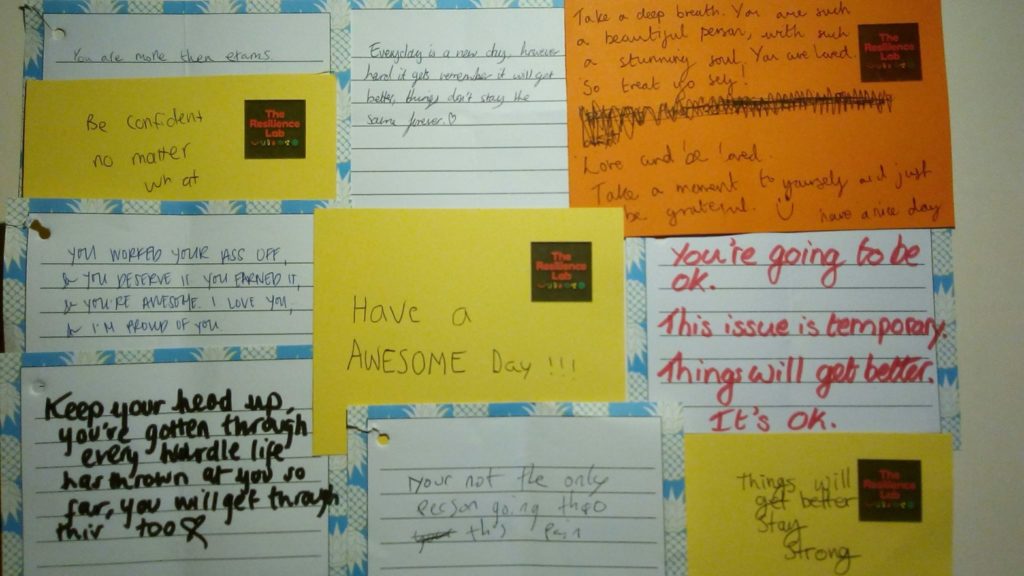 You are more then exams.
Be confident
no matter
what
The
Resilience
Lab
Everyday is a new day, however
hard it gets remember it will get
better, things don't stay the
same forever.♡
Take a deep breath. You are such
a beautiful person, with such
a stunning soul. You are loved.
So treat yo self!
Love and be loved.
Take a moment to yourself and just
be grateful. have a nice day
The
Resilience
Lab
YOU WORKED YOUR ASS OFF,
& YOU DESERVE IT YOU EARNED IT,
& YOU'RE AWESOME. I LOVE YOU,
& I'M PROUD OF YOU
Have a
AWESOME Day !!!
The
Resilience
Lab
You're going to be
ok.
This issue is temporary.
Things will get better.
It's ok.
Keep your head up,
you've gotten through
every hurdle life
has thrown at you so
far, you will get through
this too
Your not the only
person going thro
this pain
Things will
get better
Stay
Strong
The
Resilience
Lab